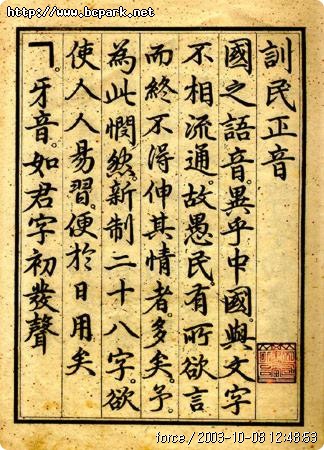 http://www.bcpark.net
訓民正音
國之語音。異乎中國。與文字
不相流通。故愚民。有所欲言
而終不得伸其情者。多矣。予。
為此憫然。新制二十八字。欲
使人人易習。便於日用矣
ㄱ。牙音。如君字初發聲
force / 2003-10-08 12:48:53